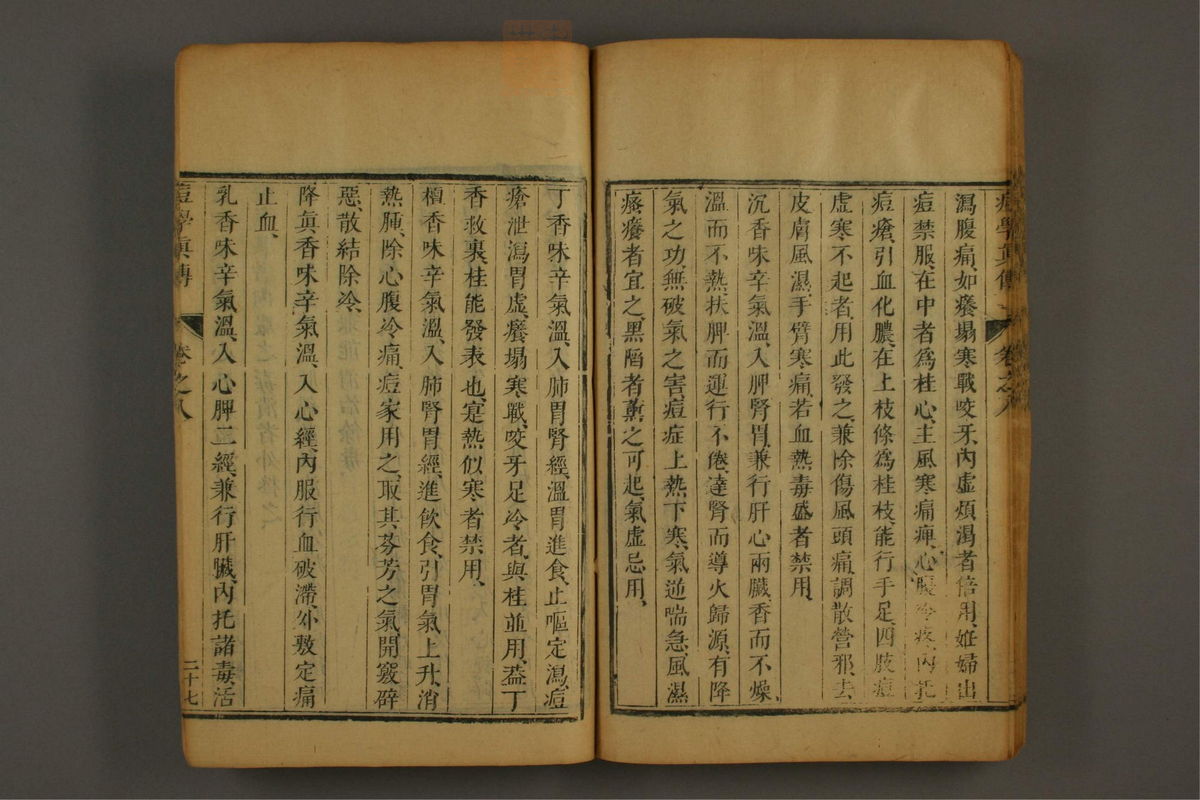 痘學眞傳 卷之八
瀉腹痛、如癢塌寒戰咬牙、內虛煩渴者倍用、妊婦出
痘禁服、在中者爲桂心、主風寒痛痺、心腹冷疼、內托
痘瘡、引血化膿、在上枝條爲桂枝、能行手足、四肢痘
虛寒不起者、用此發之、兼除傷風頭痛、調散營邪、去
皮膚風濕、手臂寒痛、若血熱毒盛者禁用、
沉香味辛氣溫、入脾腎胃、兼行肝心兩臟、香而不燥、
溫而不熱、扶脾而運行不倦、達腎而導火歸源、有降
氣之功、無破氣之害、痘症上熱下寒、氣逆喘急、風濕
瘙癢者宜之、黑陷者薰之可起、氣虛忌用、
丁香味辛氣溫、入肺胃腎經、溫胃進食、止嘔定瀉、痘
瘡泄瀉胃虛、癢塌寒戰、咬牙足冷者、與桂並用、葢丁
香救裏、桂能發表也、寔熱似寒者禁用、
檀香味辛氣溫、入肺腎胃經、進飲食、引胃氣上升、消
熱腫、除心腹冷痛、痘家用之、取其芬芳之氣、開竅辟
惡、散結除冷、
降眞香味辛氣溫、入心經、內服行血破滯、外敷定痛
止血、
乳香味辛氣溫、入心脾二經、兼行肝臟、內托諸毒、活
痘學眞傳 卷之八 二十七